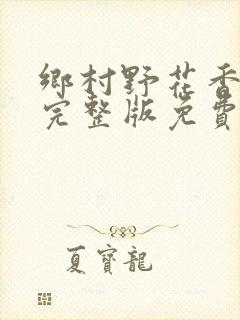 鄉村野花香
完整版免費
夏寶龍